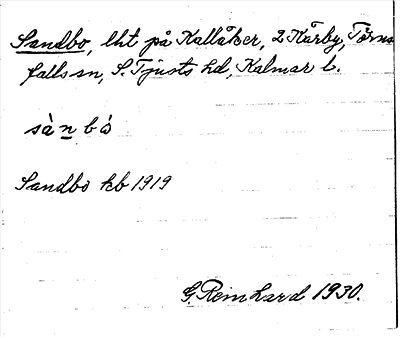 Sandbo, lht på Kallåker, 2 Kårby, Törns
falls sn, S. Tjusts hd, Kalmar l.
sàn bó
Sandbo kb 1919
G. Reinhard 1930.